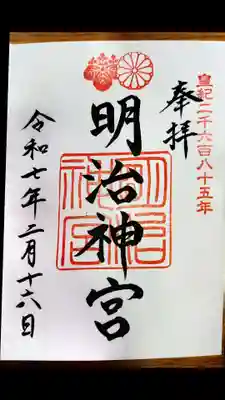 皇紀二千六百八十五年
奉拝
明治神宮
明治神宮
令和七年二月十六日